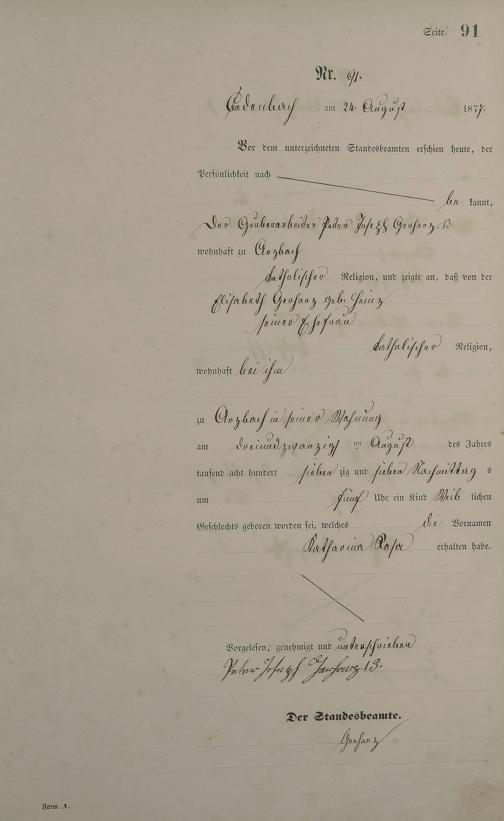 Seite 91
Nr. 91.
Cadenbach am 24. August 1877.
Vor dem unterzeichneten Standesbeamten erschien heute, der
Persönlichkeit nach
be kannt,
Der Grubenarbeiter Peter Joseph Gerharz 13.
wohnhaft zu Arzbach
katholischer Religion, und zeigte an, daß von der
Elisabeth Gerharz geb. Heinz
seiner Ehefrau
katholischer Religion,
wohnhaft bei ihm
zu Arzbach in seiner Wohnung
am dreiundzwanzigs ten August des Jahres
tausend acht hundert sieben zig und sieben Nachmittag s
um fünf Uhr ein Kind Weib lichen
Geschlechts geboren worden sei, welches die Vornamen
Katharina Rosa erhalten habe.
Vorgelesen, genehmigt und unterschrieben
Peter Joseph Gerharz 13.
Der Standesbeamte.
Gerharz
Form. A.